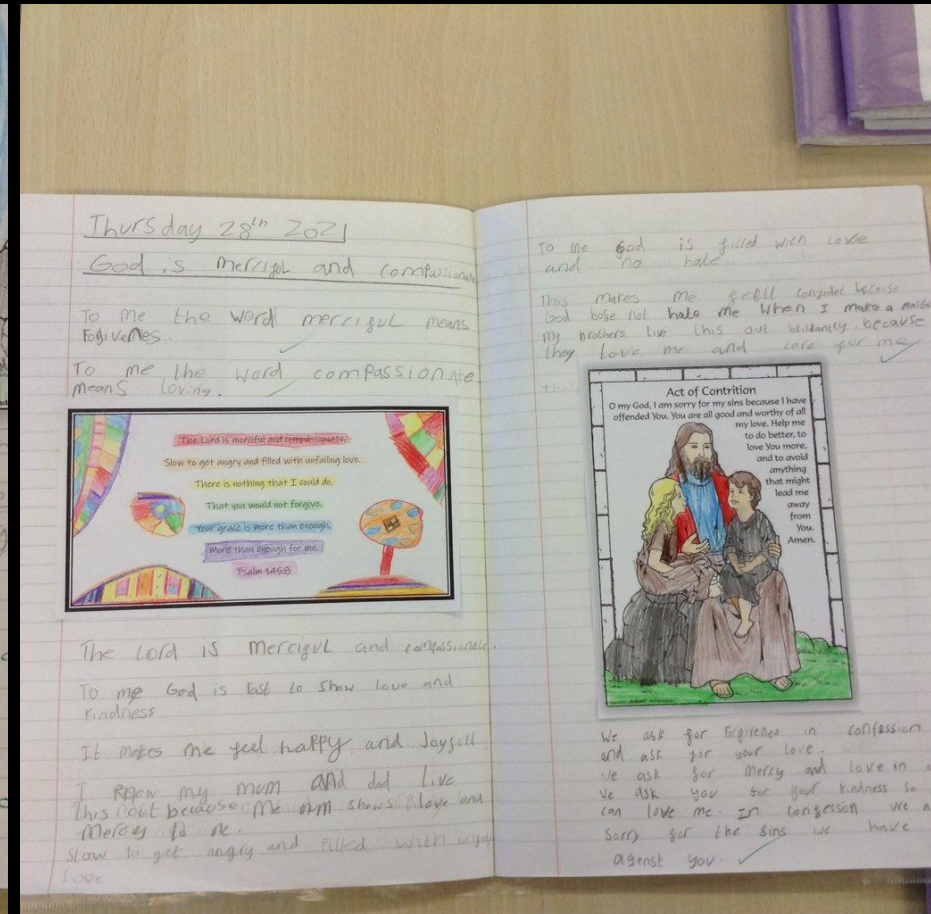 Thursday 28th 2021
God is merciful and compassionate
To me the word merciful means
forgivenes.
To me the word compassionate
means loving.
The Lord is merciful and compassionate.
Slow to get angry and filled with unfailing love.
There is nothing that I could do,
That you would not forgive.
Your grace is more than enough,
more than enough for me.
Psalm 145:8
The Lord is merciful and compassionate.
To me God is fast to show love and
kindness
It makes me feel happy and Joyfull
I know my mum and dad Live
this out because me mum shows love and
Mercy to me.
slow to get angry and filled with
Love
To me God is filled with love
and no hate
This makes me feell because
God hate me when I make a
my brothers live this out brilliantly because
they Love me and care for me
Act of Contrition
O my God, I am sorry for my sins because I have
offended You. You are all good and worthy of all
my love. Help me
to do better, to
love You more,
and to avoid
anything
that might
lead me
away
from
You.
Amen.
We ask for forgivenes in confession
and ask for your love.
We ask for mercy and love in
We ask you for your kindness so
can love me. In confession we
sorry for the sins we have
aganst you.